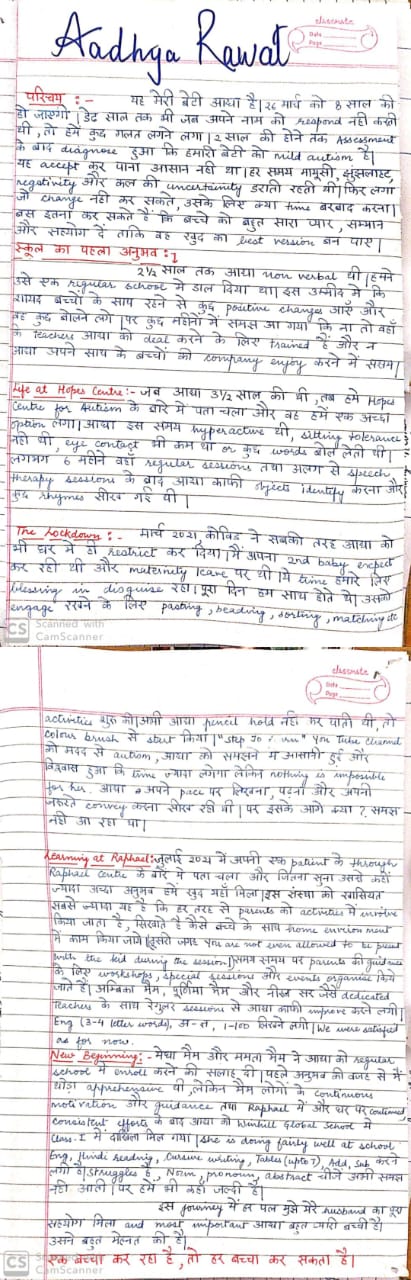 classmate
Date
Page
Aadhya Rawat
परिचय :- यह मेरी बेटी आद्या है। 26 मार्च को 8 साल की
हो जाएगी। डेढ़ साल तक भी जब अपने नाम को respond नहीं करती
थी, तो हमें कुछ गलत लगने लगा। 2 साल की होने तक Assessment
के बाद diagnose हुआ कि हमारी बेटी को mild autism है।
यह accept कर पाना आसान नहीं था। हर समय मायूसी, झुंझलाहट,
negativity और कल की uncertainity डराती रहती थी। फिर लगा
जो change नहीं कर सकते, उसके लिए क्या time बरबाद करना।
बस इतना कर सकते हैं कि बच्चे को बहुत सारा प्यार, सम्मान
और सहयोग दें ताकि वह खुद का best version बन पाए।
स्कूल का पहला अनुभव :-
2½ साल तक आद्या non verbal थी। हमने
उसे एक regular school में डाल दिया था। इस उम्मीद में कि
शायद बच्चों के साथ रहने से कुछ positive changes आएँ और
वह कुछ बोलने लगे। पर कुछ महीनों में समझ आ गया कि ना तो वहाँ
के teachers आद्या को deal करने के लिए trained हैं और न
आद्या अपने साथ के बच्चों की company enjoy करने में सक्षम।
Life at Hopes Centre:- जब आद्या 3½ साल की थी, तब हमें Hopes
Centre for Autism के बारे में पता चला और वह हमें एक अच्छा
option लगा। आद्या इस समय hyperactive थी, sitting tolerance
नहीं थी, eye contact भी कम था or कुछ words बोल लेती थी।
लगभग 6 महीने वहाँ regular sessions तथा अलग से speech
therapy sessions के बाद आद्या काफी objects identify करना और
कुछ rhymes सीख गई थी।
The Lockdown :- मार्च 2021, कोविड ने सबकी तरह आद्या को
भी घर में ही restrict कर दिया। मैं अपना 2nd baby expect
कर रही थी और maternity leave पर थी। ये time हमारे लिए
blessing in disguise रहा। पूरा दिन हम साथ होते थे। उसको
engage रखने के लिए pasting, beading, sorting, matching etc
CS Scanned with CamScanner
classmate
Date
Page
activities शुरू की। अभी आद्या pencil hold नहीं कर पाती थी, तो
colour brush से start किया। "Step To" You Tube Channel
की मदद से autism, आद्या को समझने में आसानी हुई और
विश्वास हुआ कि time ज्यादा लगेगा लेकिन nothing is impossible
for her. आद्या अपने pace पर लिखना, पढ़ना और अपनी
जरूरतें convey करना सीख रही थी। पर इसके आगे क्या? समझ
नहीं आ रहा था।
Learning at Raphael:- जुलाई 2021 में अपनी एक patient के through
Raphael Centre के बारे में पता चला और जितना सुना उससे कहीं
ज्यादा अच्छा अनुभव हमें खुद यहाँ मिला। इस संस्था की खासियत
सबसे ज्यादा यह है कि हर तरह से parents को activities में involve
किया जाता है, सिखाते हैं कैसे बच्चे के साथ home environment
में काम किया जाये। दूसरी जगह You are not even allowed to be present
with the kid during the session। समय समय पर parents की guidance
के लिए workshops, special sessions और events organise किये
जाते हैं। अम्बिका मैम, पूर्णिमा मैम और नीरज सर जैसे dedicated
teachers के साथ रेगुलर sessions से आद्या काफी improve करने लगी।
Eng (3-4 letter words), अ-ज्ञ, 1-100 लिखने लगी। We were satisfied
as for now.
New Beginning:- मेघा मैम और ममता मैम ने आद्या को regular
school में enroll करने की सलाह दी। पहले अनुभव की वजह से मैं
थोड़ा apprehensive थी, लेकिन मैम लोगों के continuous
motivation और guidance तथा Raphael में और घर पर continued,
consistent efforts के बाद आद्या को Winhill Global School में
Class-I में दाखिला मिल गया। She is doing fairly well at school
Eng, Hindi reading, Cursive writing, Tables (upto 7), Add, Sub करने
लगी है। Struggles हैं, Noun, pronoun, abstract चीजें अभी समझ
नहीं आती। पर हमें भी कहाँ जल्दी है।
इस journey में हर पल मुझे मेरे husband का पूरा
सहयोग मिला and most important आद्या बहुत प्यारी बच्ची है।
उसने बहुत मेहनत की है।
एक बच्चा कर रहा है, तो हर बच्चा कर सकता है।
CS Scanned with CamScanner